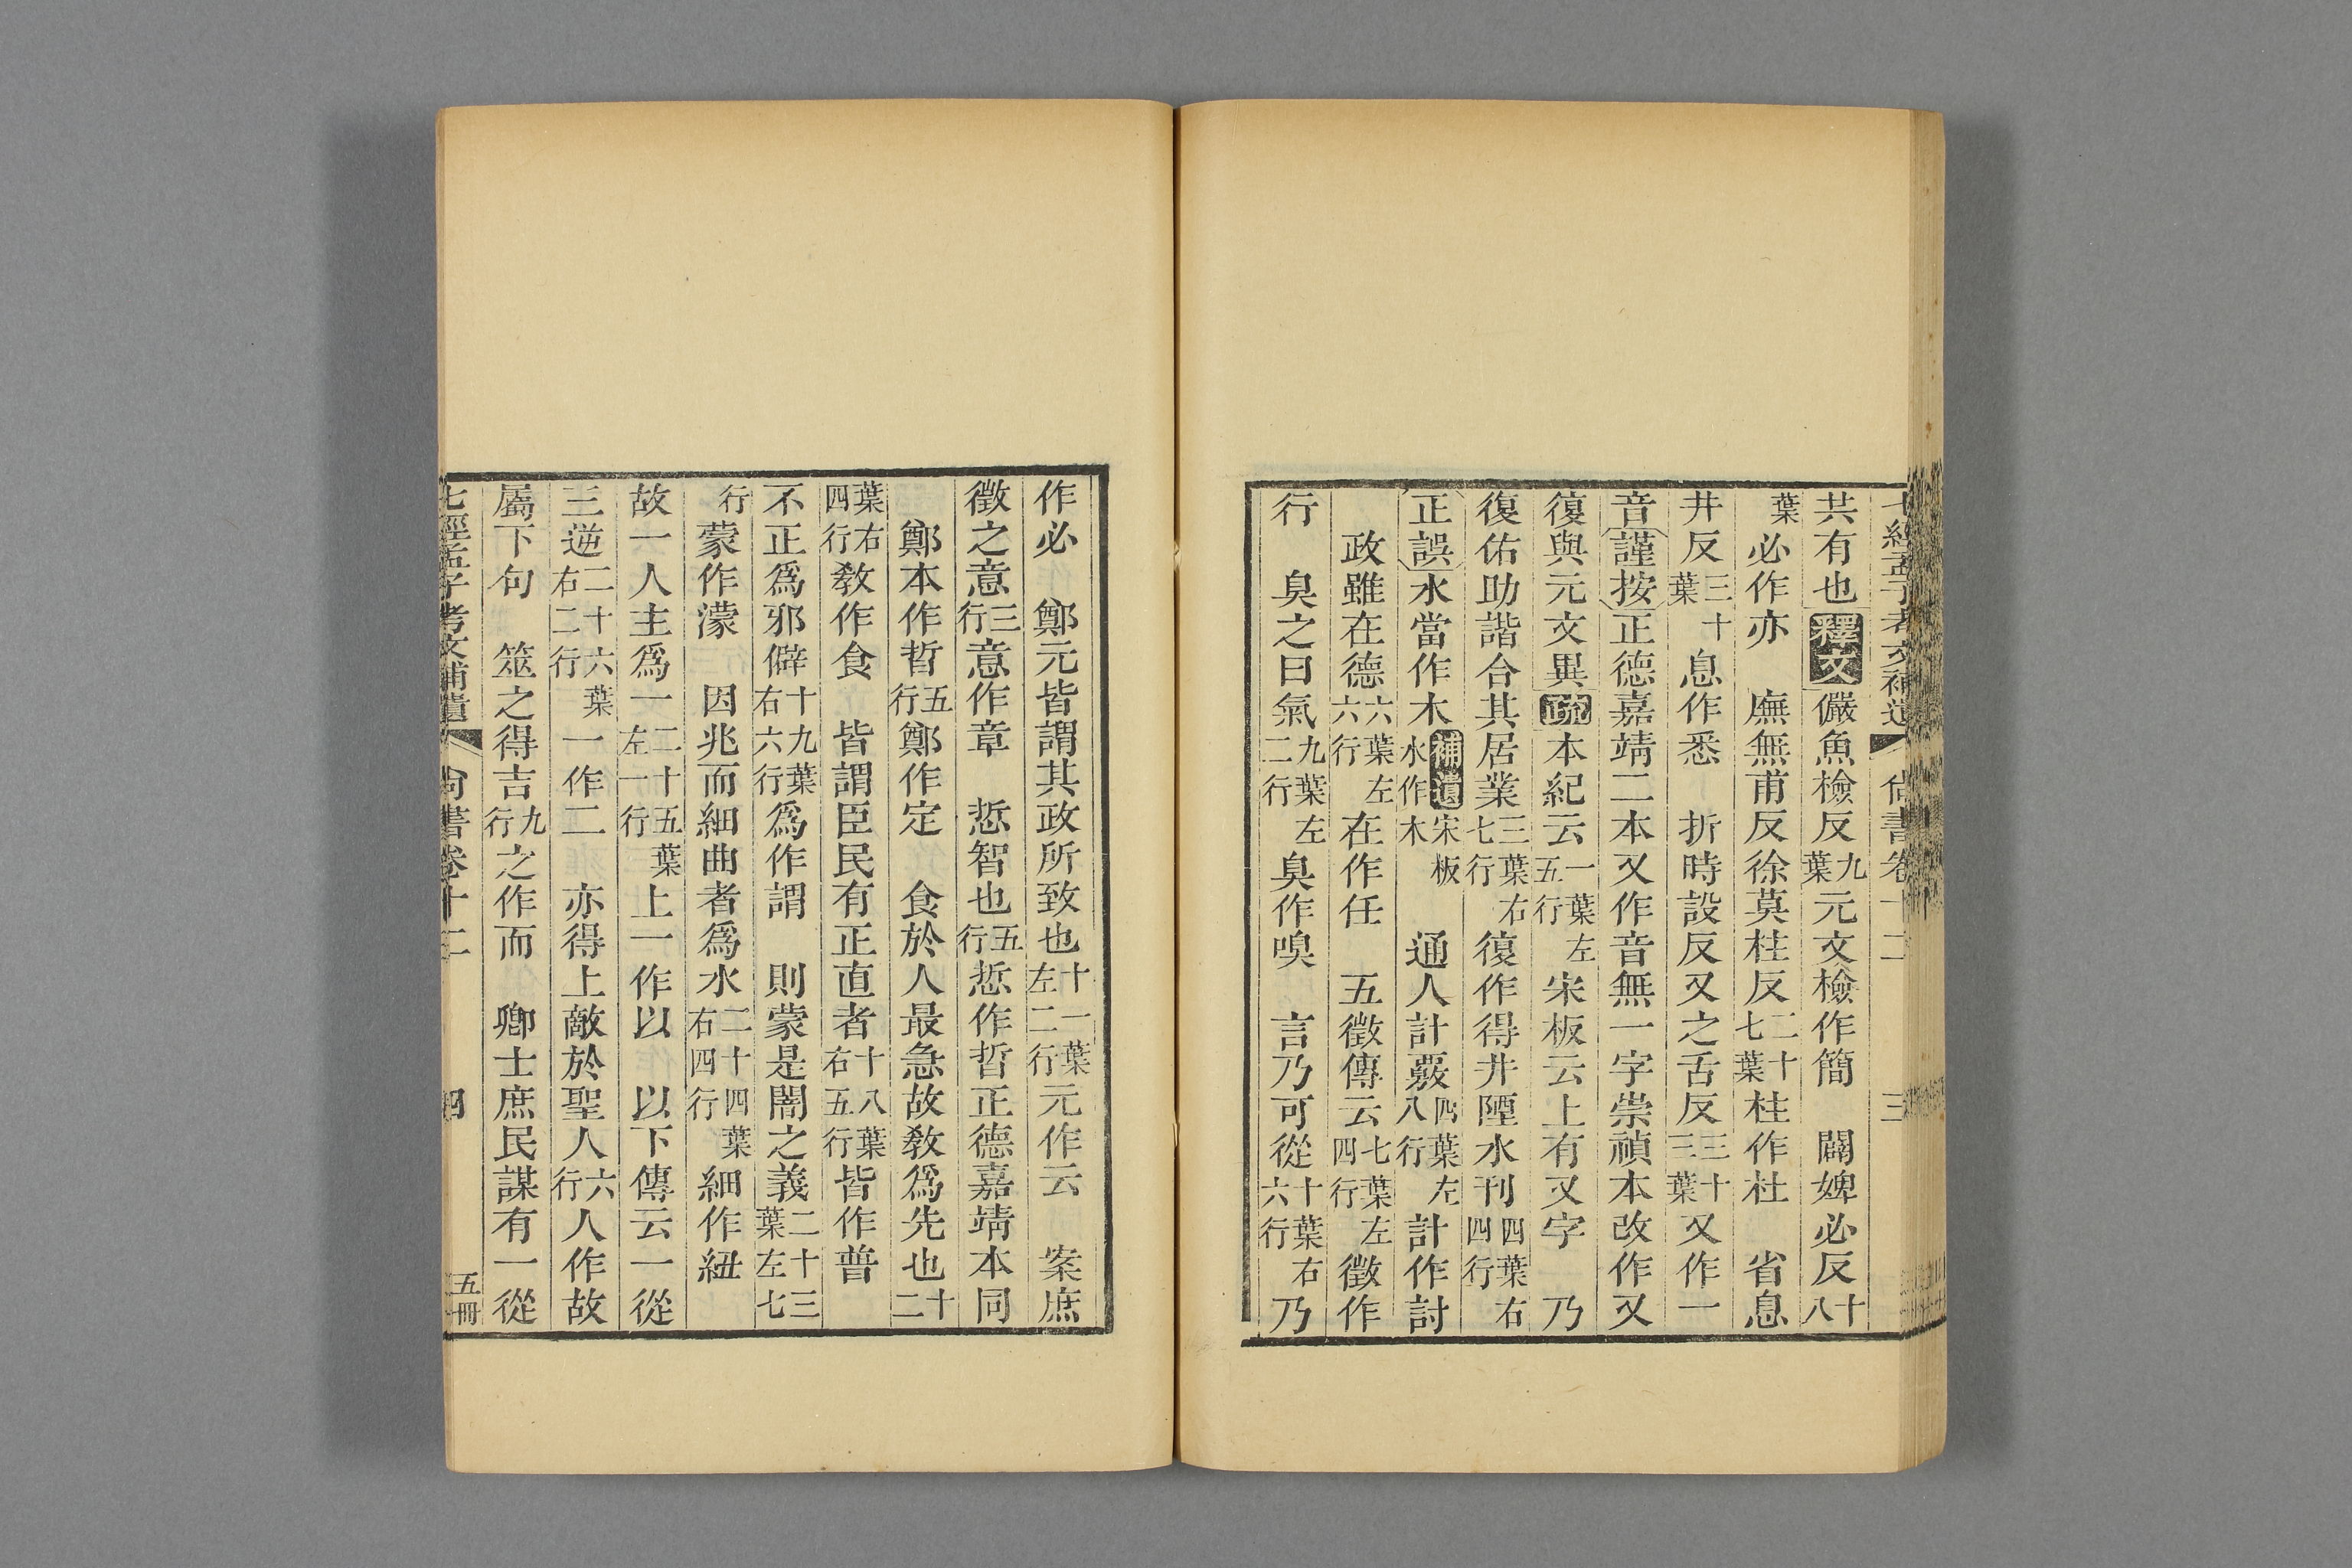 七經孟子考文補遺 尚書卷十二 三
共有也釋文儼魚檢反九葉元文檢作簡 闢婢必反十八
葉必作亦 廡無甫反徐莫柱反二十七葉柱作杜 省息
井反三十葉息作悉 折時設反又之舌反三十三葉又作一
音謹按正德嘉靖二本又作音無一字崇禎本改作又
復與元文異疏本紀云一葉左五行宋板云上有又字 乃
復佑助諧合其居業三葉右七行復作得井陻水刊四葉右四行
正誤水當作木補遺宋板水作木 通人計覈四葉左八行計作討
政雖在德六葉左六行在作任 五徵傳云七葉左四行徵作
行 臭之曰氣九葉左二行臭作嗅 言乃可從十葉右六行乃
作必 鄭元皆謂其政所致也十一葉左二行元作云 案庶
徵之意三行意作章 悊智也五行悊作哲正德嘉靖本同
鄭本作晢五行鄭作定 食於人最急故教爲先也十二
葉右四行教作食 皆謂臣民有正直者十八葉右五行皆作普
不正爲邪僻十九葉右六行爲作謂 則蒙是闇之義二十三葉左七
行蒙作濛 因兆而細曲者爲水二十四葉右四行細作紐
故一人主爲一二十五葉左一行上一作以 以下傳云一從
三逆二十六葉右二行一作二 亦得上敵於聖人六行人作故
屬下句 筮之得吉九行之作而 卿士庶民謀有一從
七經孟子考文補遺 尚書卷十二 四 五冊